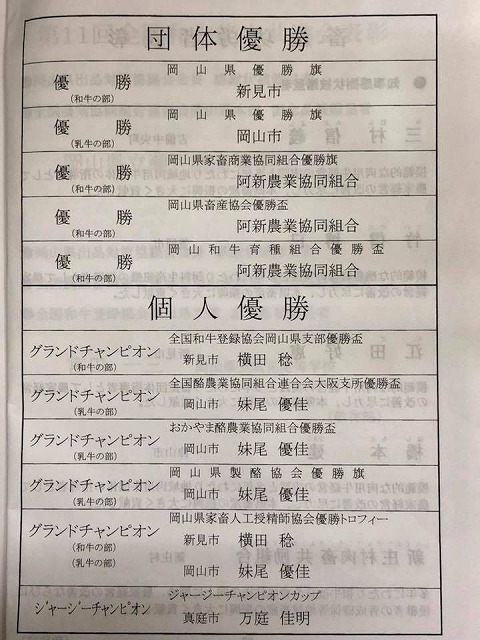 団体優勝
優勝
(和牛の部)
岡山県優勝旗
新見市
優勝
(乳牛の部)
岡山県優勝旗
岡山市
優勝
(和牛の部)
岡山県家畜商業協同組合優勝旗
阿新農業協同組合
優勝
(和牛の部)
岡山県畜産協会優勝盃
阿新農業協同組合
優勝
(和牛の部)
岡山和牛育種組合優勝盃
阿新農業協同組合
個人優勝
グランドチャンピオン
(和牛の部)
全国和牛登録協会岡山県支部優勝盃
新見市 横田 稔
グランドチャンピオン
(乳牛の部)
全国酪農業協同組合連合会大阪支所優勝盃
岡山市 妹尾 優佳
グランドチャンピオン
(乳牛の部)
おかやま酪農業協同組合優勝盃
岡山市 妹尾 優佳
グランドチャンピオン
(乳牛の部)
岡山県製酪協会優勝旗
岡山市 妹尾 優佳
グランドチャンピオン
(和牛の部)
(乳牛の部)
岡山県家畜人工授精師協会優勝トロフィー
新見市 横田 稔
岡山市 妹尾 優佳
ジャージーチャンピオン
ジャージーチャンピオンカップ
真庭市 万庭 佳明